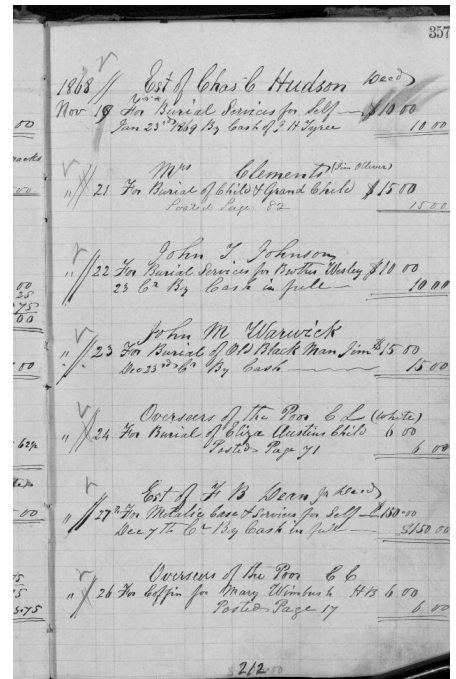 357
1868 // Est of Chas C Hudson Decd
Nov 19 For Burial Services for Self — $10 00
Jan 23rd 1869 By Cash of J H Tyree 10 00
Mrs Clements (Jim Oliver)
" // 21 For Burial of Child & Grand Child $15 00
Posted Page 82 15 00
John T Johnson
" // 22 For Burial Services for Brother Wesley $10 00
23 Cr By Cash in full — 10 00
John M Warwick
" // 23 For Burial of Old Black Man Jim $15 00
Dec 23rd Cr By Cash — 15 00
Overseers of the Poor C L (White)
" 24 For Burial of Eliza Austins Child 6 00
Posted Page 71 6 00
Est of F B Deane jr Decd
" // 27th For Metalic Case & Services for Self — $150.00
Dec 7th Cr By Cash in full — $150 00
Overseers of the Poor C C
" 26 For Coffin for Mary Wimbush H B 6 00
Posted Page 17 6 00
212